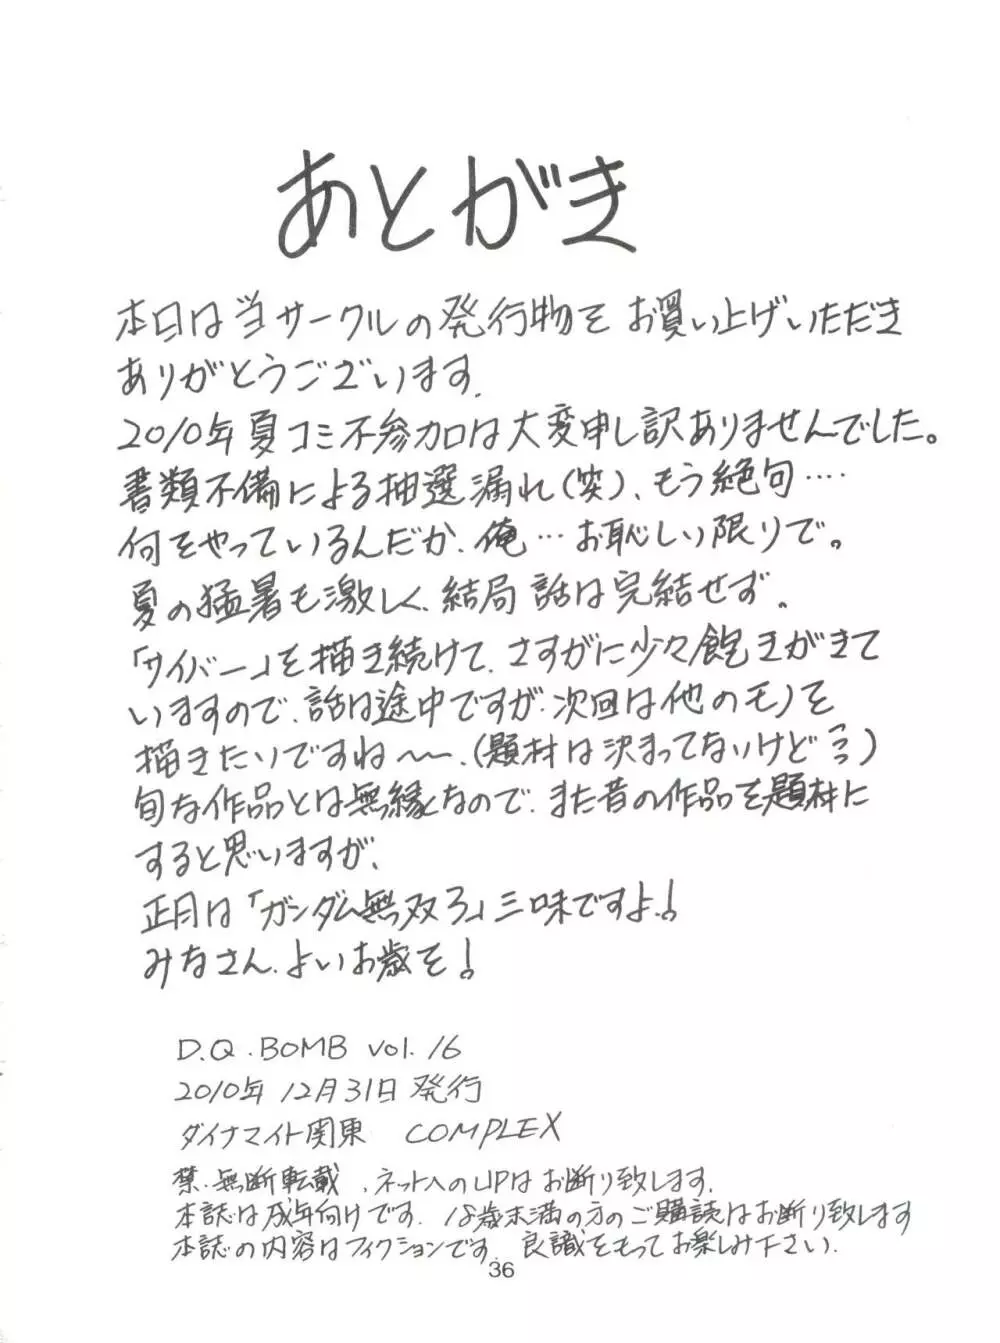 あとがき
本日は当サークルの発行物をお買い上げいただき
ありがとうございます.
2010年夏コミ不参加は大変申し訳ありませんでした。
書類不備による抽選漏れ(笑)、もう絶句‥‥
何をやっているんだか、俺…お恥しい限りで。
夏の猛暑も激しく、結局話は完結せず。
「サイバー」を描き続けて、さすがに少々飽きがきて
いますので、話は途中ですが、次回は他のモノを
描きたいですね〜〜、(題材は決まってないけど)
旬な作品とは無縁なので、また昔の作品を題材に
すると思いますが、
正月は「ガンダム無双3」三昧ですよ!
みなさん、よいお歳を!
D.Q.BOMB vol.16
2010年12月31日発行
ダイナマイト関東 COMPLEX
禁・無断転載、ネットへのUPはお断り致します.
本誌は成年向けです、18歳末満の方のご購読はお断り致します
本誌の内容はフィクションです、良識をもってお楽しみ下さい.
36